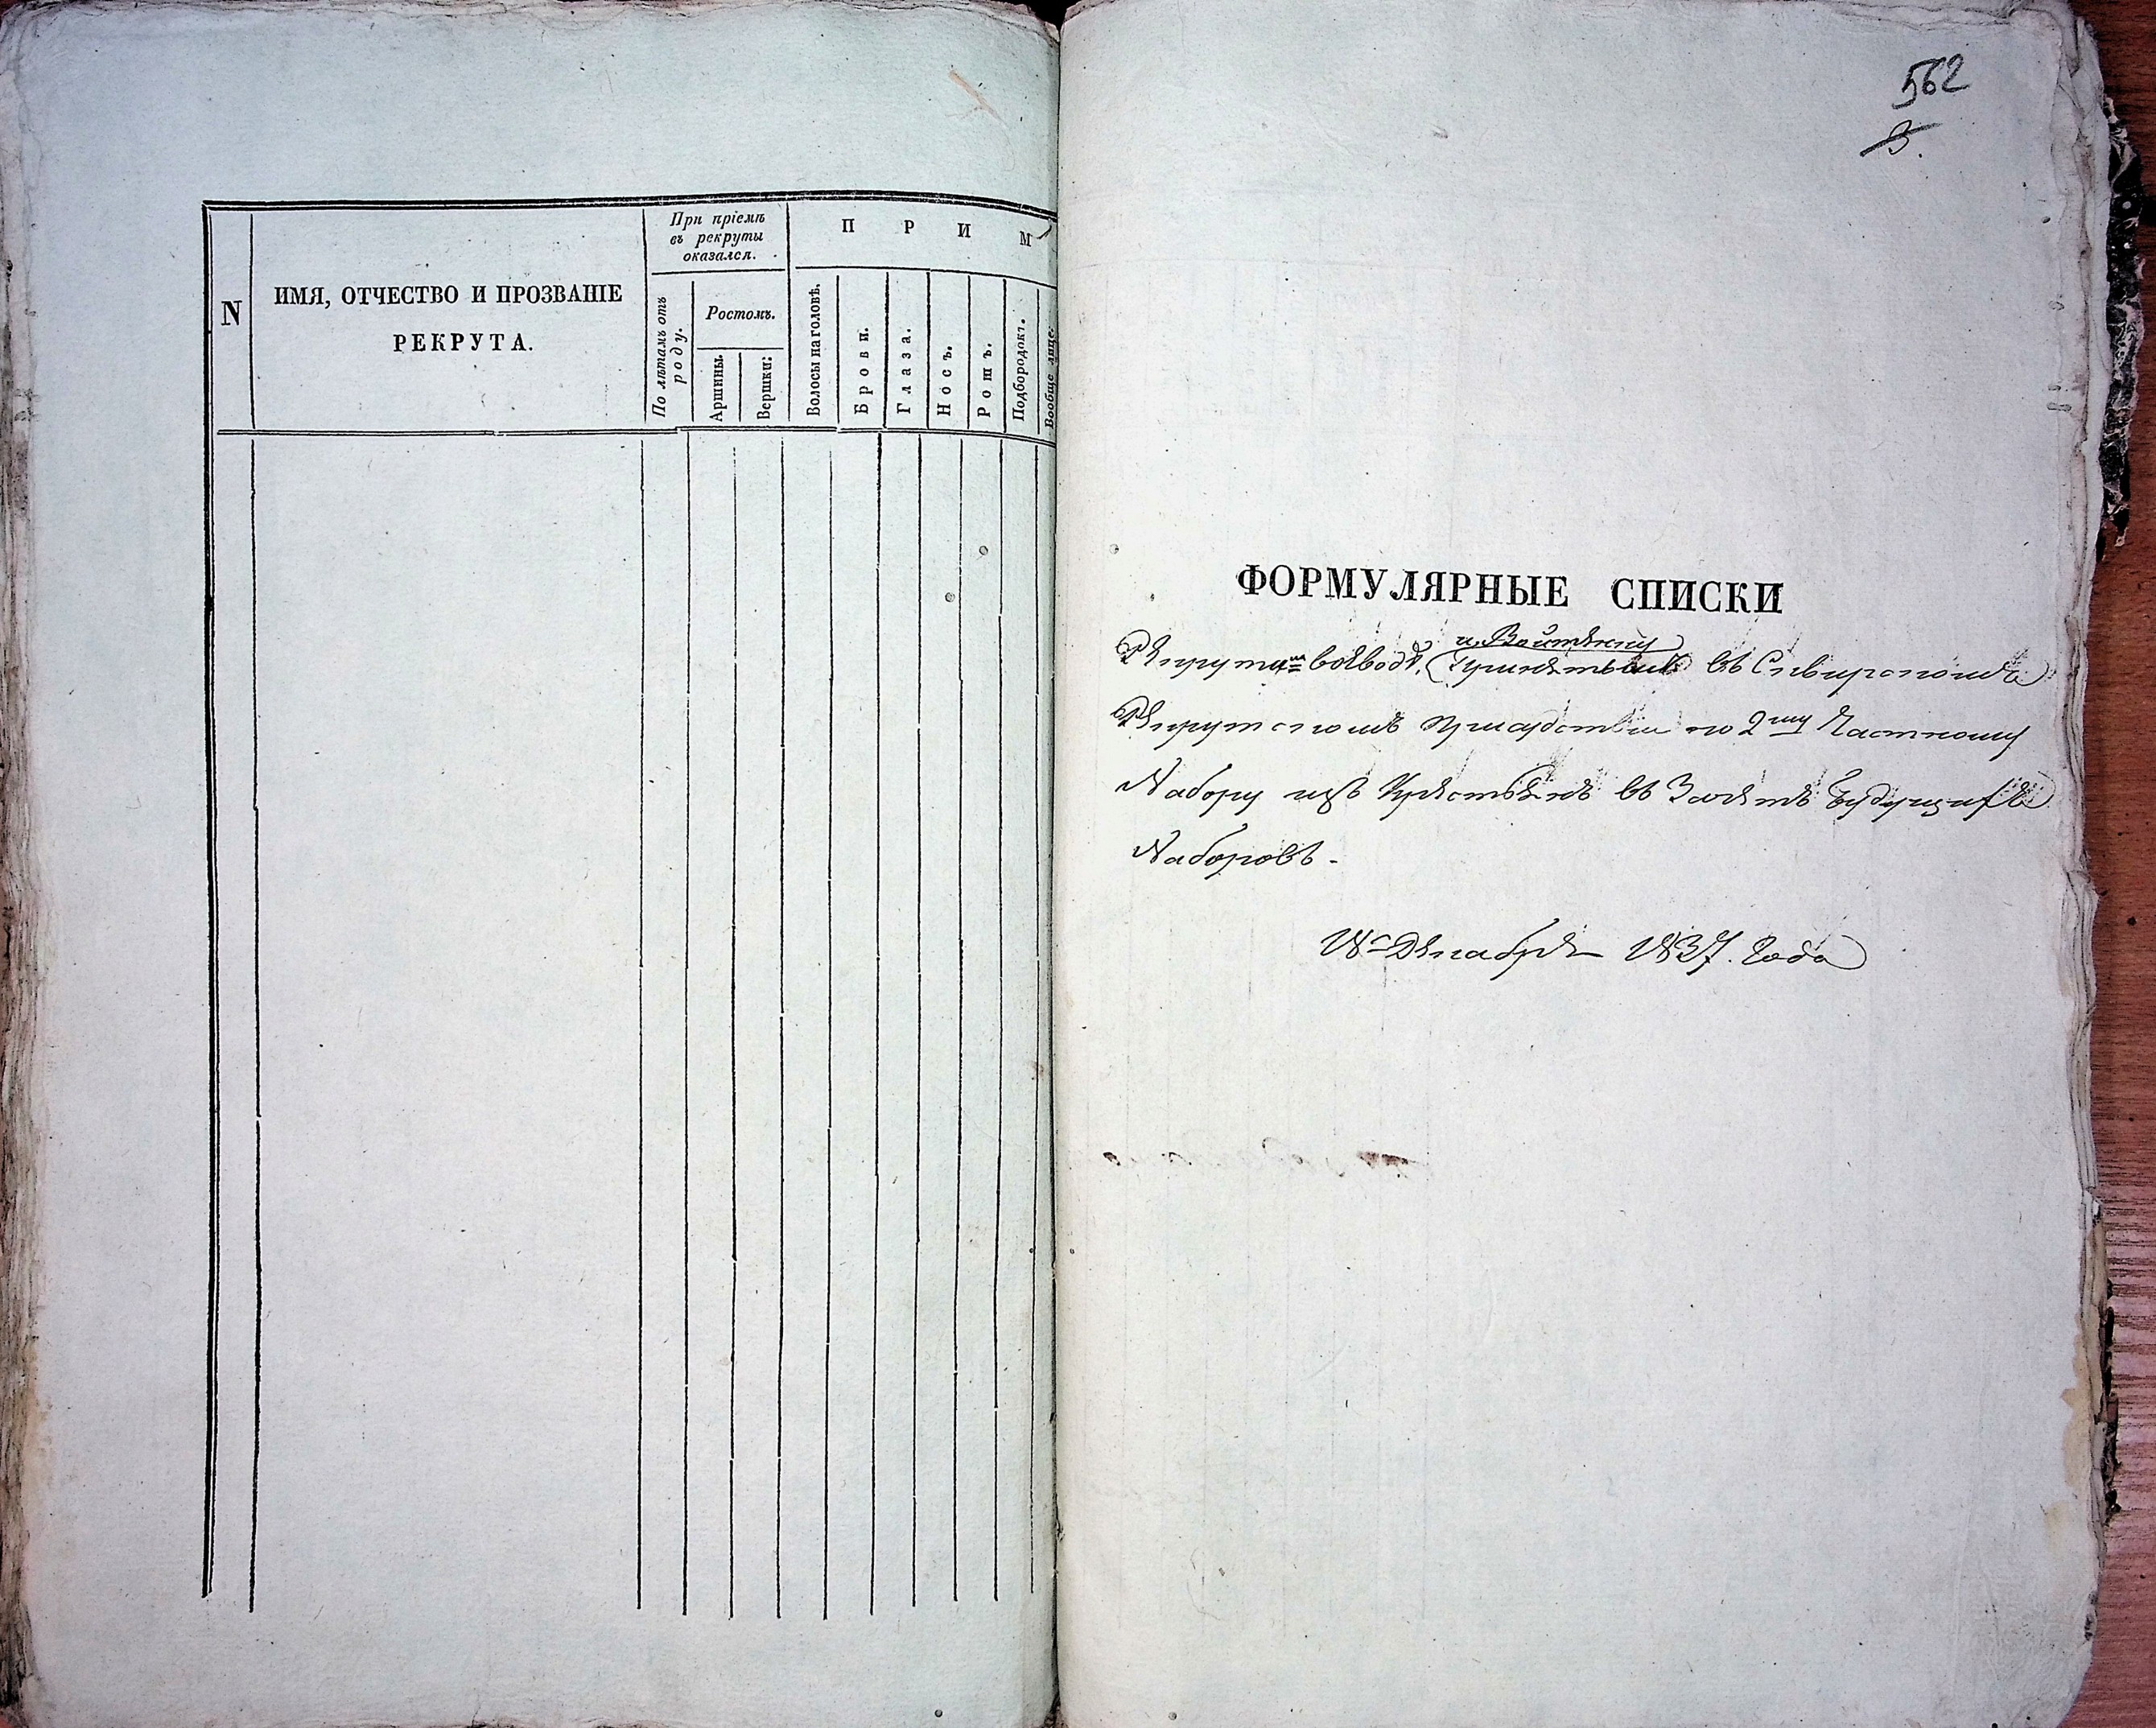 N
ИМЯ, ОТЧЕСТВО И ПРОЗВАНІЕ
РЕКРУТА.
При пріемѣ
въ рекруты
оказался.
По лѣтамъ отъ
роду.
Ростомъ.
Аршины.
Вершки:
П Р И М
Волосы на головѣ.
Брови.
Глаза.
Носъ.
Ротъ.
Подбородокъ.
Вообще лице.
562
3.
ФОРМУЛЯРНЫЕ СПИСКИ
принятымъ въ
Рекрутскомъ присудствіи по 2му Частному
Набору изъ Крестьянъ въ Зачетъ Будущихъ
Наборовъ.
Декабря 1837. Года